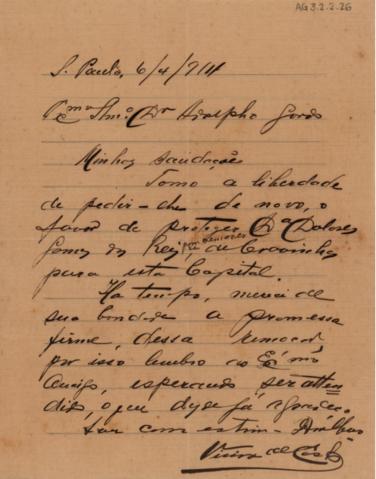 AG3.2.2.26
S. Paulo, 6/4/914
Exmo Snr. Dr Adolpho Gordo
Minhas saudações
Tomo a liberdade
de pedir-lhe de novo, o
favor de proteger Da Dolores
Gomes dos Reis, de Cravinhos
para esta Capital.
Ha tempo, mereci de
sua bondade a promessa
firme, dessa remoção
por isso lembro ao
amigo, esperando, ser atten
dido, o que desde já agradeço.
com estima
Vieira de